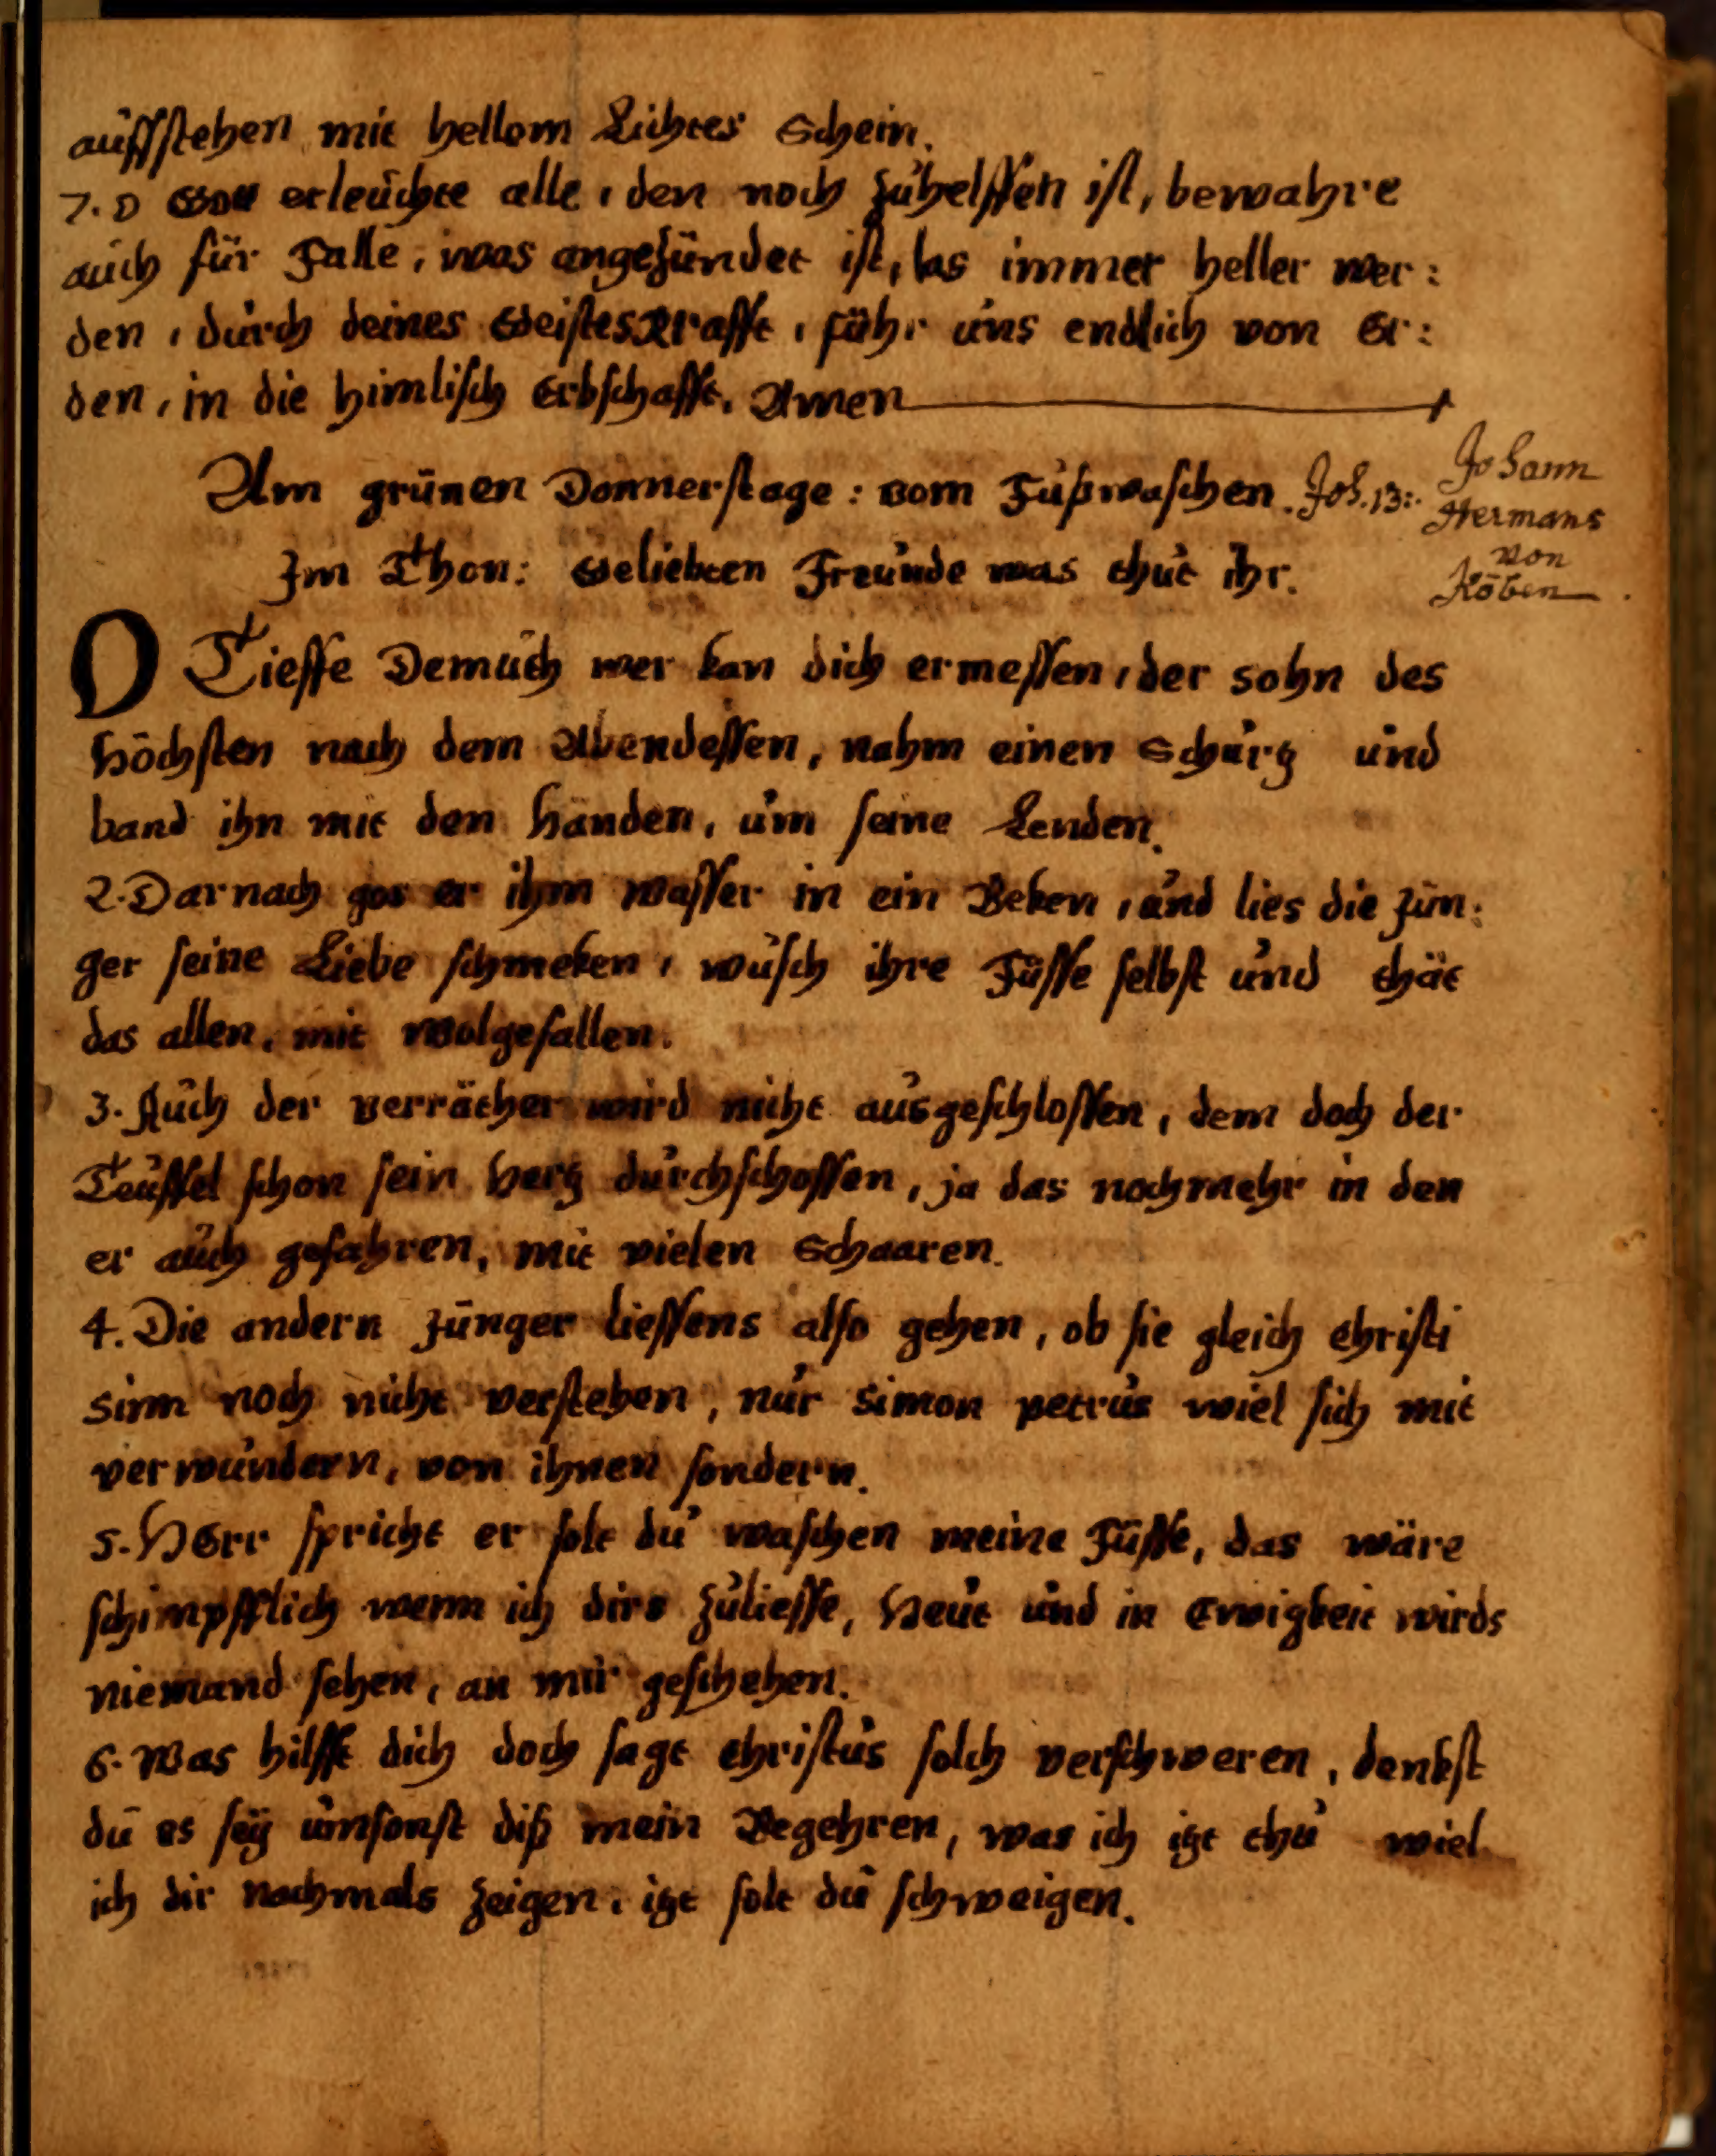 auffstehen mit hellem Lichtes Schein.
7. O Gott erleuchte alle, den noch zuhelffen ist, bewahre
auch für Falle, was angezündet ist, las immer heller wer:
den, durch deines Geistes Krafft, führ uns endlich von Er:
den, in die himlisch Erbschafft. Amen
Am grünen Donnerstage: vom Fußwaschen. Joh. 13:
Johann
Hermans
von
Köben
Im Thon: Geliebten Freunde was thut ihr.
O Tieffe Demuth wer kan dich ermessen, der sohn des
Höchsten nach dem Abendessen, nahm einen Schurz und
band ihn mit den Händen, um seine Lenden.
2. Darnach gos er ihm wasser in ein Beken, und lies die Jün:
ger seine Liebe schmeken, wusch ihre Füsse selbst und thät
das allen, mit wolgefallen.
3. Auch der verräther wird nicht ausgeschlossen, dem doch der
Teuffel schon sein herz durchschossen, ja das nochmehr in den
er auch gefahren, mit vielen Schaaren.
4. Die andern Jünger liessens also gehen, ob sie gleich Christi
Sinn noch nicht verstehen, nur Simon petrus wiel sich mit
verwundern, von ihnen sondern.
5. HErr spricht er solt du waschen meine Füsse, das wäre
schimpfflich wenn ich dirs zuliesse, Heut und in Ewigkeit wirds
niemand sehen, an mir geschehen.
6. Was hilfft dich doch sagt Christus solch verschweren, denkst
du es seÿ umsonst diß mein Begehren, was ich izt thu wiel
ich dir nachmals zeigen, izt solt du schweigen.